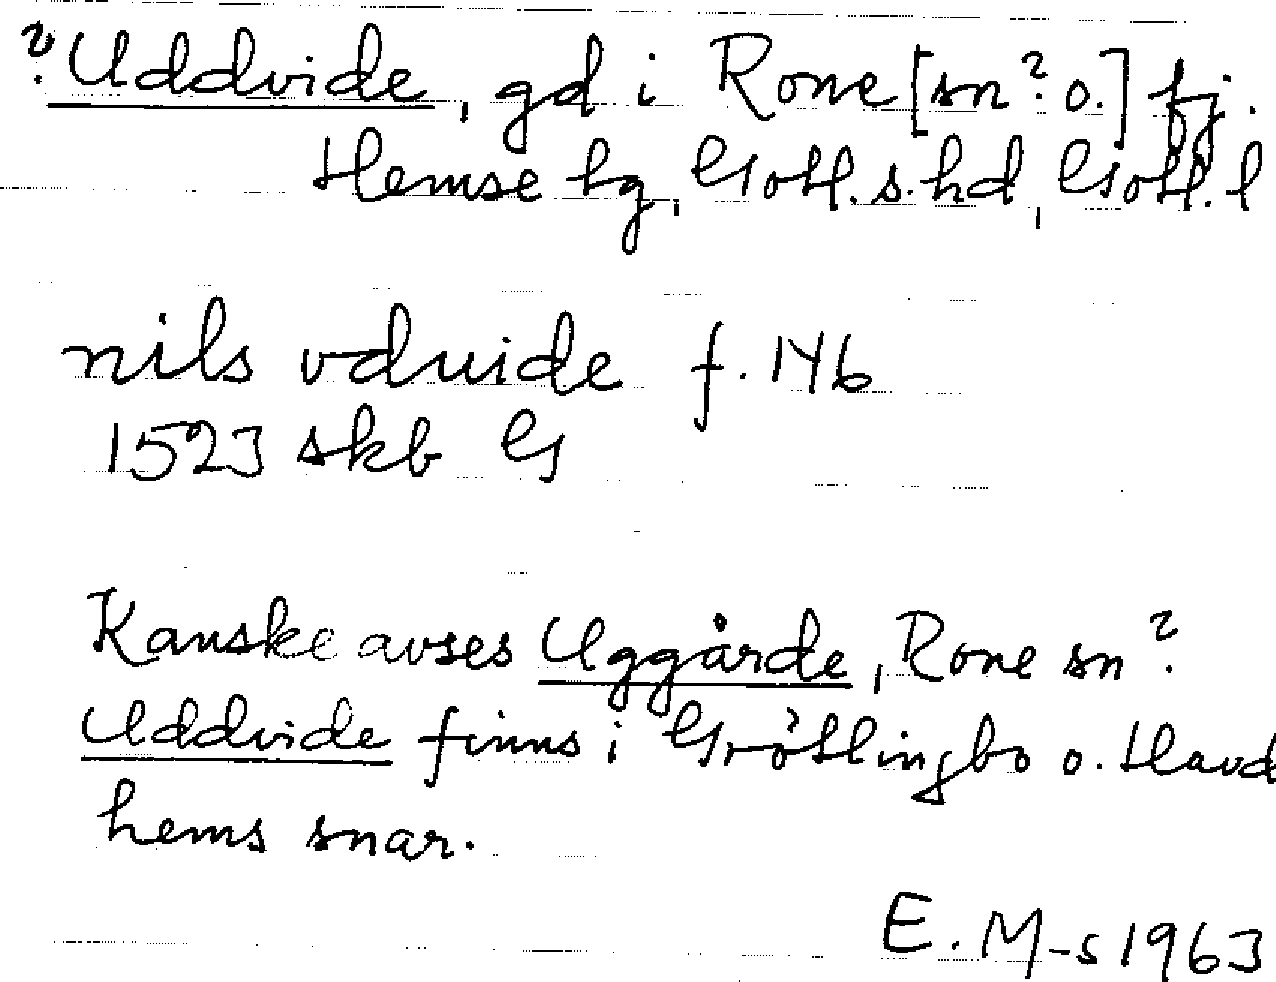 ? Uddvide, gd i Rone [sn? o.] fj.
Hemse hg, Gotl. s. hd, Gotl. l
nils vduide f. 14b
1523 skb G
Kanske avses Uggårde, Rone sn?
Uddvide finns i Grötlingbo o. Havd
hems snar.
E. M-s 1963